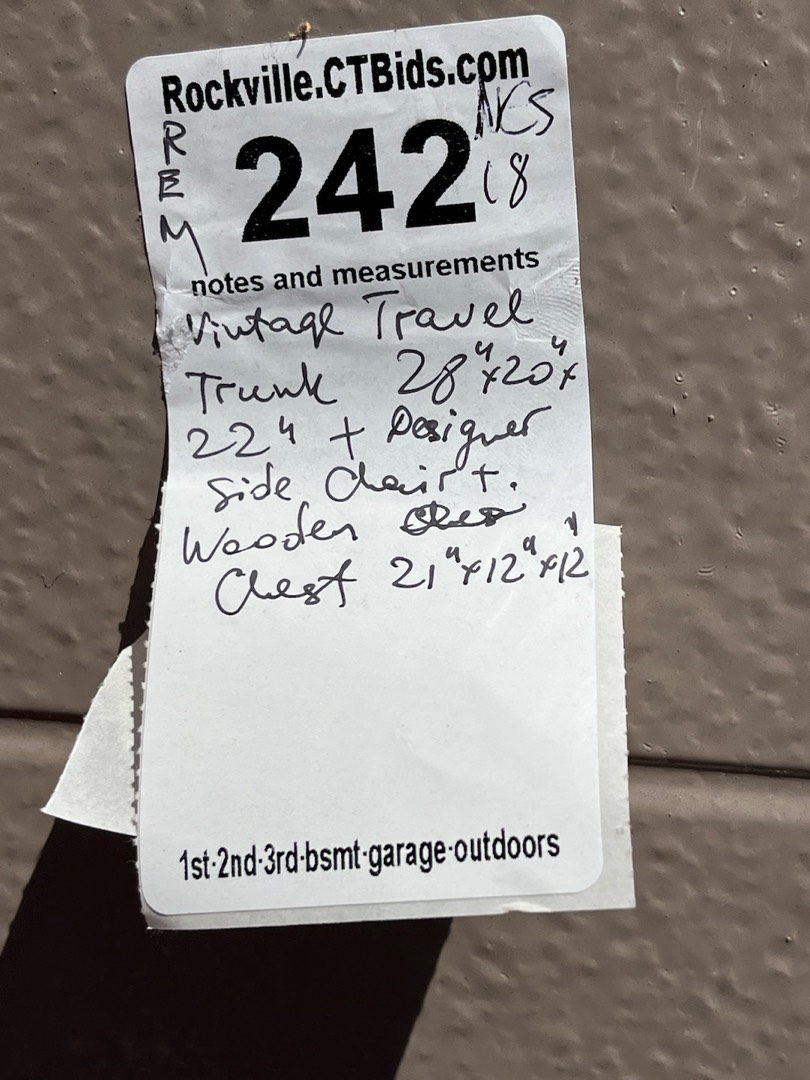 Rockville.CTBids.com
REM
242
18
notes and measurements
Vintage Travel
Trunk 28"x20"x
22" + Designer
Side Chair +.
Wooden
Chest 21"x12"x12"
1st·2nd·3rd·bsmt·garage·outdoors